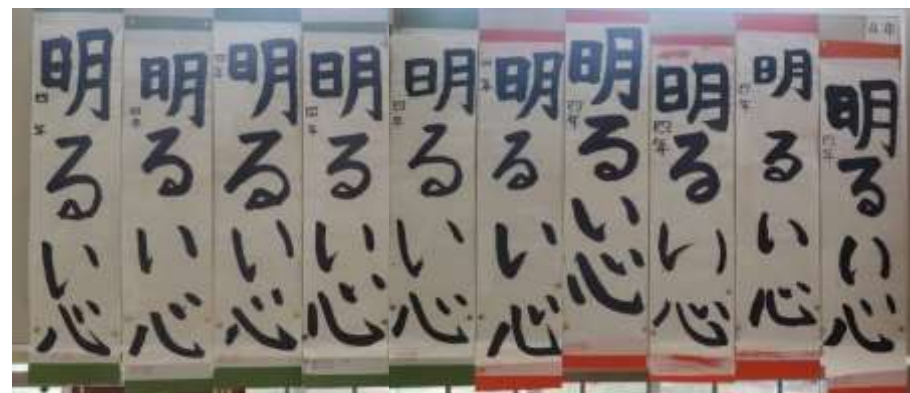 明るい心
四年
明るい心
四年
明るい心
四年
明るい心
四年
明るい心
四年
明るい心
四年
明るい心
四年
明るい心
四年
明るい心
四年
明るい心
四年